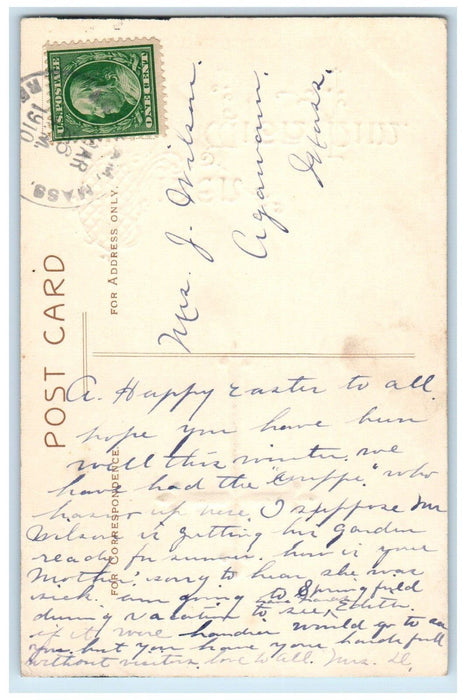 U.S. POSTAGE
ONE CENT
MAR
1910
MASS.
POST CARD
FOR ADDRESS ONLY.
Mrs. J. Wilson.
Agawam.
Mass.
FOR CORRESPONDENCE
A. Happy Easter to all.
hope you have been
well this winter. we
have had the "Grippe." who
hasn't up here. I suppose Mr
Wilson is getting his Garden
ready for summer. how is your
Mother. sorry to hear she was
sick. am going to Springfield
during vacation to see Edith.
if it were handier would go to see
you. but you have your hands full
without visitors love to all. Mrs. D.